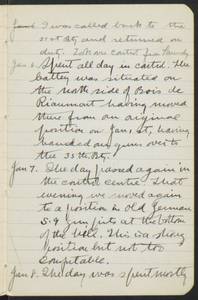 Jan 5 I was called back to the
51st Bty and returned on
duty. Took over control from
Jan 6 Spent all day in control. The
battery was situated on
the north side of Bois de
Riaumont having moved
there from an original
position on Jan 1st, having
handed our guns over to
the 33rd Bty.
Jan 7. The day passed again in
the control centre. That
evening we moved again
to a position in old German
5.9 gun pits at the bottom
of the hill. This is a strong
position but not too
comfortable.
Jan 8. The day was spent mostly